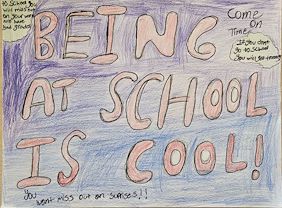 to School you
will miss out
on your work
will have
bad grades!
BEING
AT SCHOOL
IS COOL!
Come
on
Time
If you dont
go to School
you will
You
wont miss out on